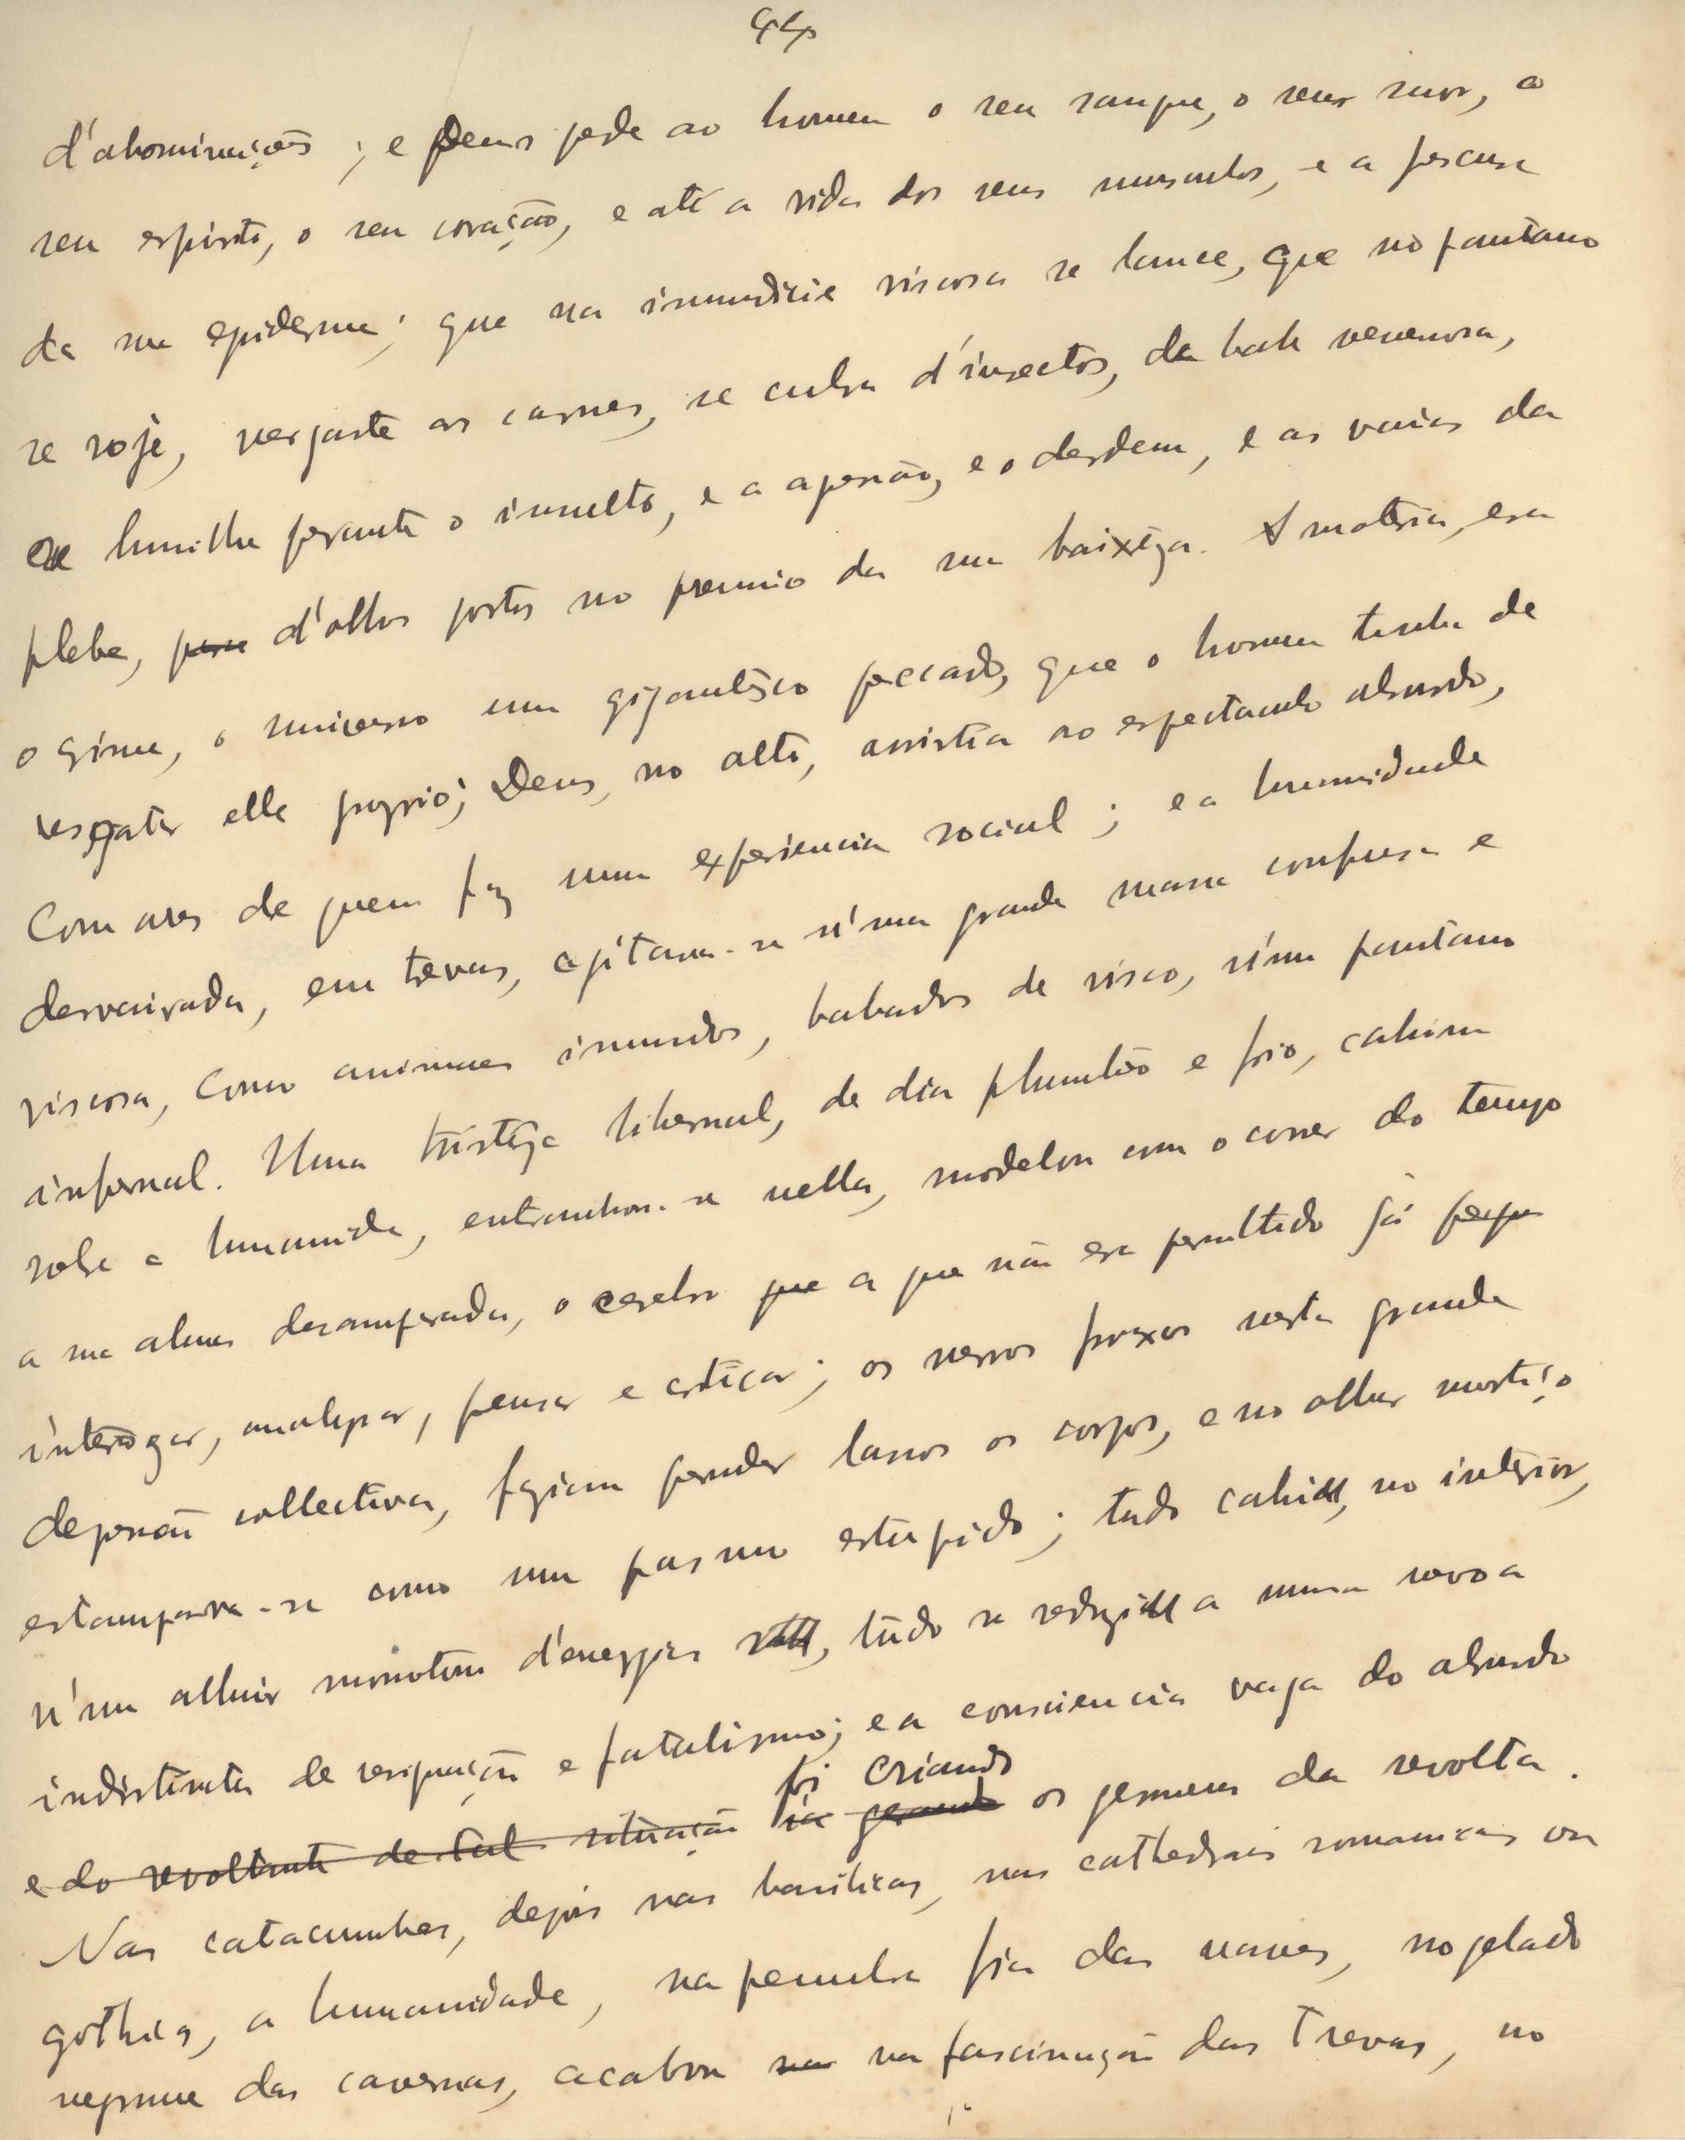 44
d'abominações; e Deus pede ao homem o seu sangue, o seu suor, o
seu espirito, o seu coração, e até a vida dos seus musculos, e a
da sua epiderme; que na immundicie viscosa se lance, que no pantano
se roje, vergaste as carnes, se cubra d'insectos, da baba venenosa,
se humilhe perante o insulto, e a apenão, e o desdem, e as vaias da
plebe, para d'olhos postos no premio da sua baixeza. A materia, era
o crime, o universo um gigantesco peccado, que o homem tinha de
resgatar elle proprio; Deus, no alto, assistia ao espectaculo absurdo,
Com ares de quem faz uma experiencia social; e a humanidade
desvairada, em trevas, agitava-se n'uma grande massa confusa e
viscosa, como animaes immundos, babados de visco, n'um pantano
infernal. Uma tristeza hibernal, de dia plumbeo e frio, cahira
sobre a humanida, entranhou-se nella, modelou com o correr do tempo
a sua alma desamparada, o cerebro que a que não era permittido já
interrogar, analysar, pensar e criticar; os nervos froxos nesta grande
depressão collectiva, faziam pender lassos os corpos, e no olhar mortiço
estampava-se como um pasmo estupido; tudo cahia, no interior,
n'um alluir monotono d'energias, tudo se reduzia a numa nevoa
indistincta de resignação e fatalismo; e a consciencia vaga do absurdo
foi criando
e do revoltante de tal situação ia gerando os germens da revolta.
Nas catacumbas, depois nas basilicas, nas cathedraes romanicas ou
gothicas, a humanidade, na penumbra fria das naves, no gelado
negrume das cavernas, acabou na na fascinação das Trevas, no